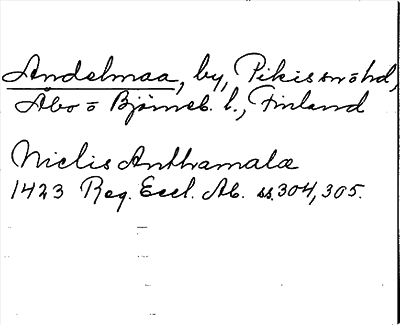 Andelmaa, by, Pikis sn ō hd,
Åbo ō Björneb. l., Finland
Niclis Anthamalæ
1423 Reg. Eccl. Ab. ss. 304, 305.